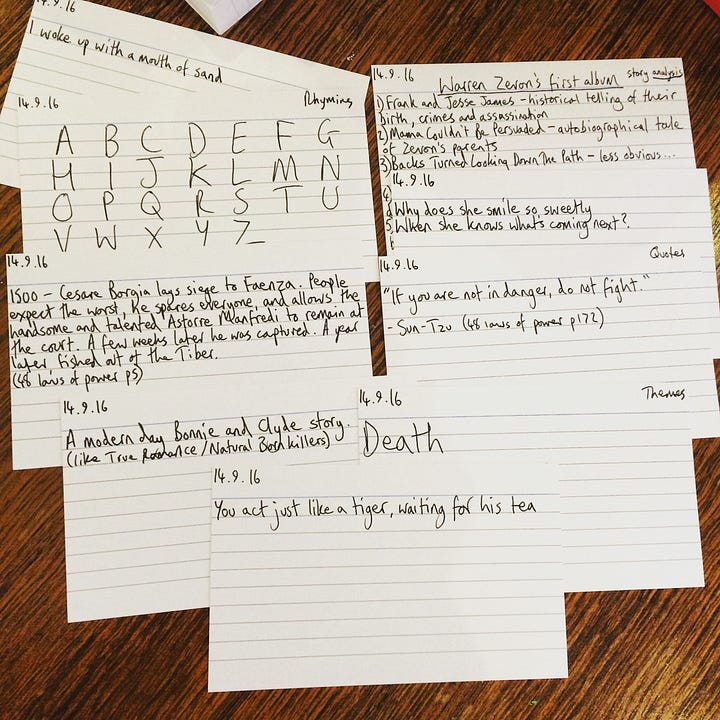 14.9.16
I woke up with a mouth of sand
14.9.16
Rhyming
A B C D E F G
H I J K L M N
O P Q R S T U
V W X Y Z
1500 - Cesare Borgia lays siege to Faenza. People
expect the worst, he spares everyone, and allows the
handsome and talented Astorre Manfredi to remain at
the court. A few weeks later he was captured. A year
layer, fished out of the Tiber.
(48 laws of power p5)
14.9.16
14.9.16
A modern day Bonnie and Clyde story.
(like True Romance/Natural Born killers)
14.9.16
Warren Zevon's first album
story analysis
1) Frank and Jesse James - historical telling of their
birth, crimes and assassination
2) Mama Couldn't Be Persuaded - autobiographical tale
of Zevon's parents
3) Backs Turned Looking Down The Path - less obvious...
4)
5
14.9.16
Why does she smile so sweetly
When she knows what's coming next?
14.9.16
Quotes
"If you are not in danger, do not fight."
- Sun-Tzu (48 laws of power p172)
14.9.16
Themes
Death
14.9.16
You act just like a tiger, waiting for his tea